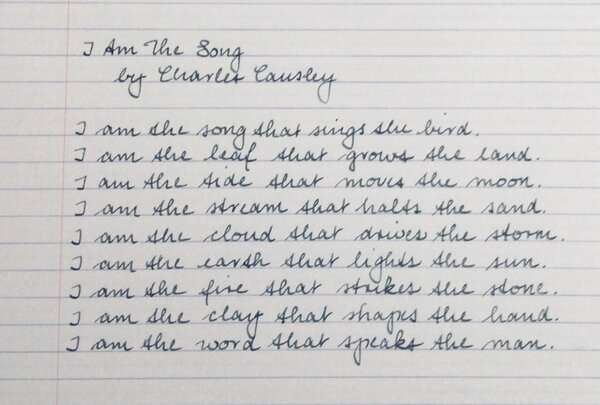 I Am The Song
by Charles Causley
I am the song that sings the bird.
I am the leaf that grows the land.
I am the tide that moves the moon.
I am the stream that halts the sand.
I am the cloud that drives the storm.
I am the earth that lights the sun.
I am the fire that strikes the stone.
I am the clay that shapes the hand.
I am the word that speaks the man.